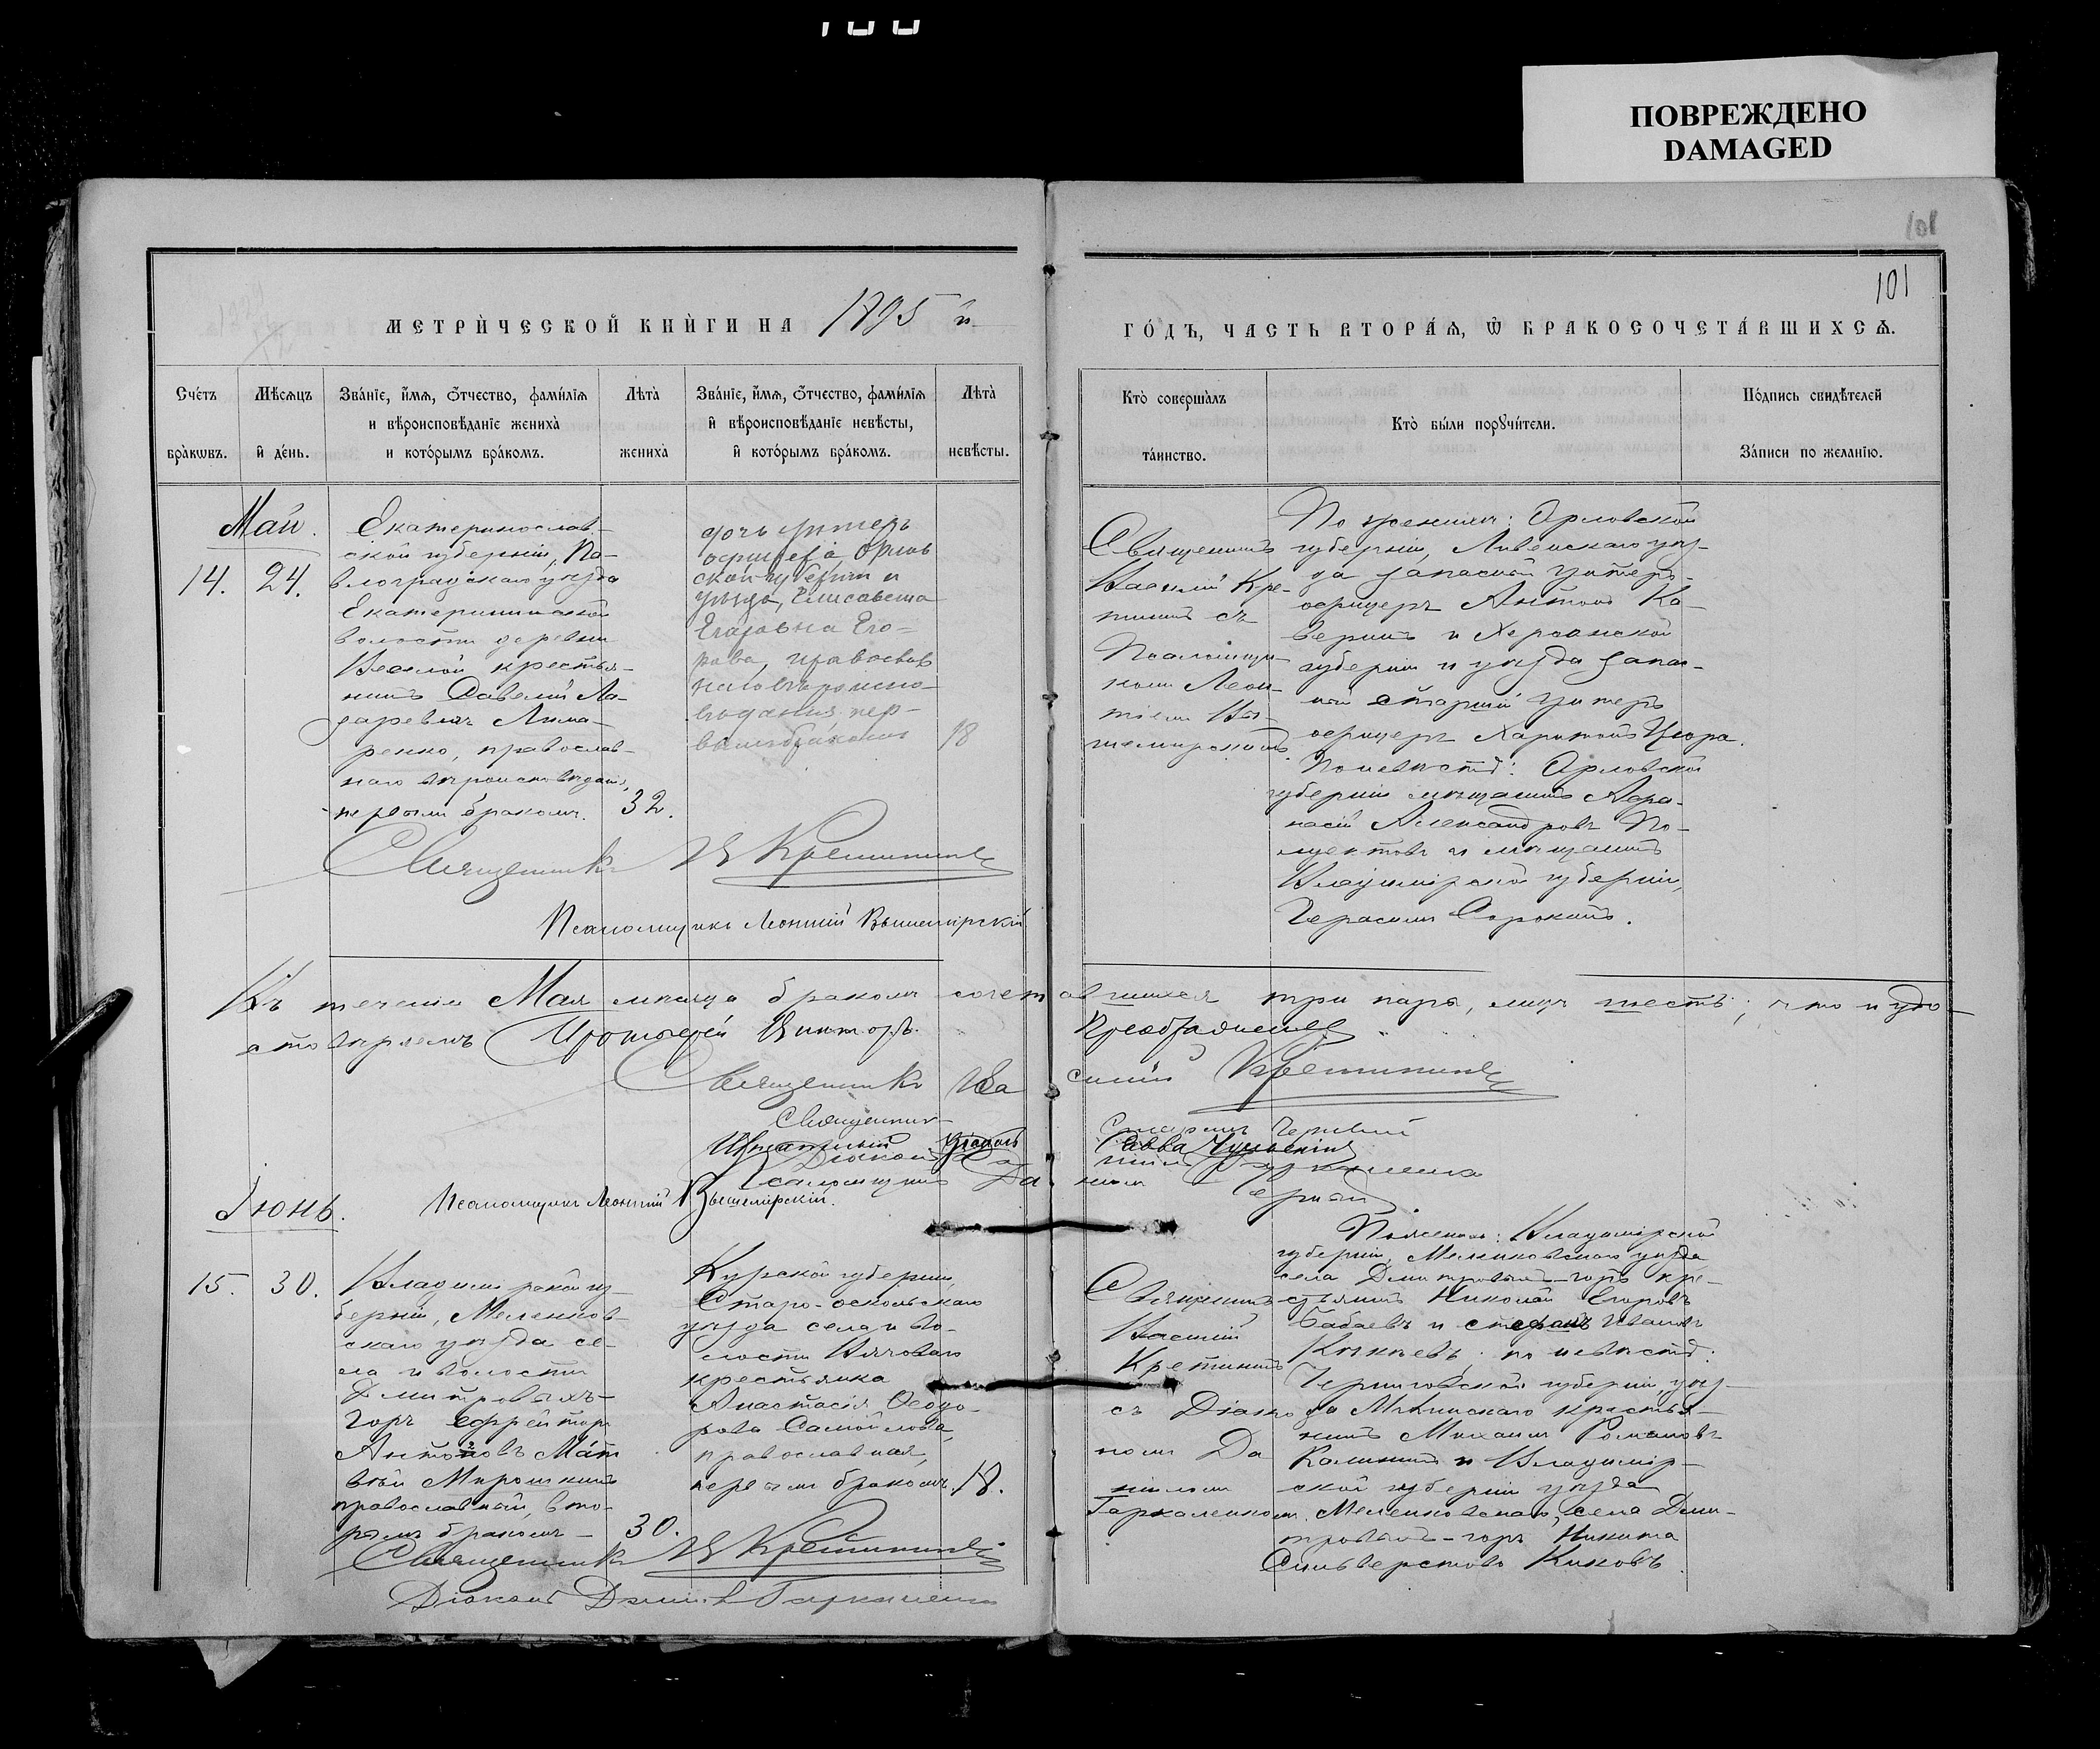 100
ПОВРЕЖДЕНО
DAMAGED
101
101
МЕТРИ́ЧЕСКОЙ КНИ́ГИ НА 1895 й
ГО́ДЪ, ЧАСТЬ ВТОРА́Я, Ѡ БРАКОСОЧЕТА́ВШИХСЯ.
Сче́тъ бра́кѡвъ.
Мѣ́сяцъ и҆ де́нь.
Зва́нїе, и҆́мя, ѻ҆́тчество, фами́лїя
и вѣроисповѣ́данїе жениха̀
и кото́рымъ бра́комъ.
Лѣта̀ жениха̀
Зва́нїе, и҆́мя, ѻ҆́тчество, фами́лїя
и҆ вѣроисповѣ́данїе невѣ́сты,
и҆ кото́рымъ бра́комъ.
Лѣта̀ невѣ́сты.
Кто̀ соверша́лъ
та́инство.
Кто̀ бы́ли порꙋчи́тели.
По́дпись свидѣ́телей
За́писи по жела́нїю.
Май.
14.
24.
Екатеринослав-
ской губерніи, Па-
влоградскаго уѣзда
волости деревни
Веселой крестья-
нинъ Савелій Ла-
заревичъ Лима-
ренко, православ-
наго вѣроисповѣдан.,
первымъ бракомъ.
32.
дочь унтеръ
офицера, Орлов
ской губерніи и
уѣзда, Елисавета
Егоровна Его-
рова, православ
наго вѣроиспо-
вѣданія, пер-
вымъ бракомъ
18
Священникъ
Василій Кре-
тининъ съ
Псаломщи-
комъ Леон-
тіемъ Вы-
шемирскимъ.
По женихѣ: Орловской
губерніи, Ливенскаго уѣз-
да запасный унтеръ-
офицеръ Антонъ Ка-
веринъ и Херсонской
губерніи и уѣзда запас-
ный старшій унтеръ
офицеръ Харитонъ Цюра.
По невѣстѣ: Орловской
губерніи мѣщанинъ Афа-
насій Александровъ По-
луектовъ и мѣщанинъ
Владимірской губерніи,
Герасимъ Сорокинъ.
Священникъ В Кретининъ
Псаломщикъ Леонтій Вышемірскій
Въ теченіи Мая мѣсяца бракомъ сочетавшихся три пары, лицъ шесть; что и удо-
стовѣряемъ Протоіерей Викторъ Преображенскій
Священникъ Василій Кретининъ
Священникъ
Псаломщикъ Леонтій Вышемірскій.
Іюнь.
15.
30.
Владимірской гу-
берніи, Меленков-
скаго уѣзда се-
ла и волости
Дмитровыхъ-
горъ Ефрейторъ
Антоновъ Мат
вѣй Мирошкинъ
православный, вто-
рымъ бракомъ-
30.
Курской губерніи,
Старо-оскольскаго
уѣзда села и во-
лости Вязоваго
крестьянка
Анастасія Ѳеодо-
рова Самойлова,
православная,
первымъ бракомъ.
18.
Священникъ
Василій
Кретининъ
съ Діако
номъ Да
ніиломъ
Гаркаленкомъ.
По женихѣ: Владимірской
губерніи, Меленковскаго уѣзда
села Дмитровыхъ-горъ кре-
стьянинъ Николай Егоровъ
Бабаевъ и Стефанъ Ивановъ
по невѣстѣ:
Черниговской губерніи, уѣз-
да Мглинскаго крестья-
нинъ Михаилъ Романовъ
Калининъ и Владимір-
ской губерніи уѣзда
Меленковскаго, села Дми-
тровыхъ-горъ Никита
Сильверстовъ Киковъ.
Священникъ В Кретининъ
Діаконъ Даніилъ Гаркаленко